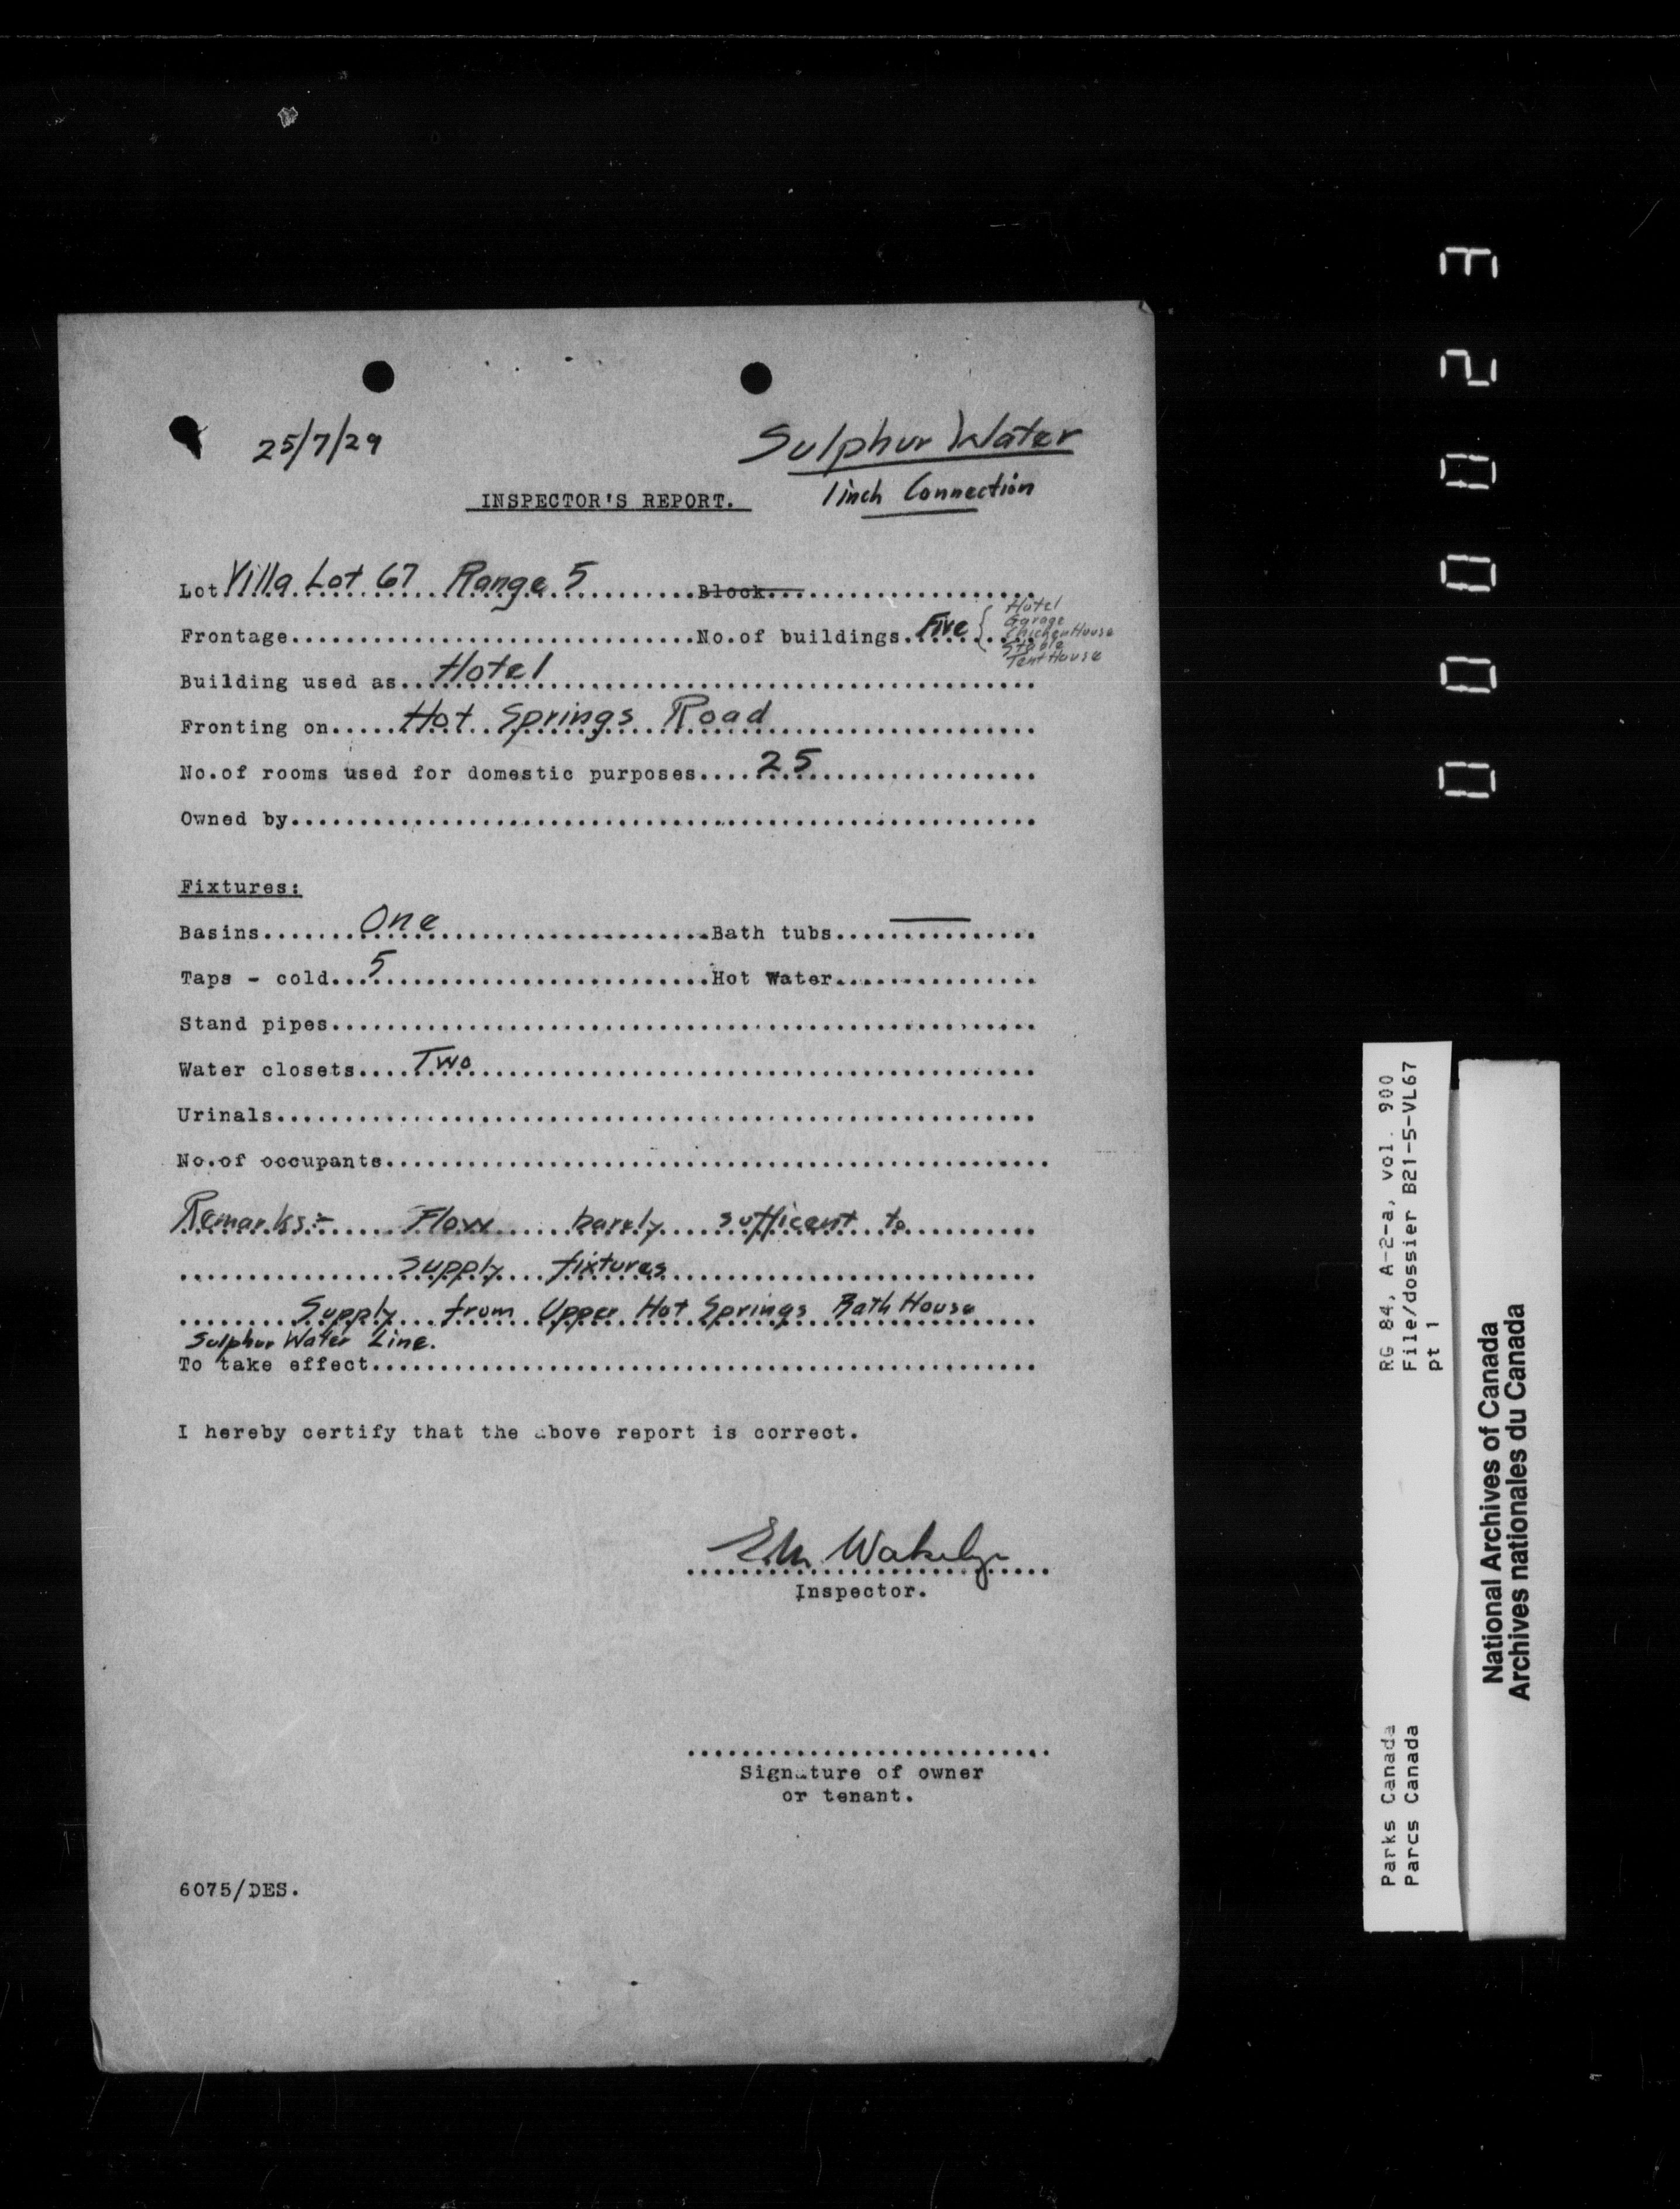 25/7/29
Sulphur Water
1 inch Connection
INSPECTOR'S REPORT.
Lot Villa Lot 67 Range 5 Block
Frontage No.of buildings Five { Hotel
Garage
Chicken House
Stable
Tent House
Building used as Hotel
Fronting on Hot Springs Road
No.of rooms used for domestic purposes 25
Owned by
Fixtures:
Basins One Bath tubs —
Taps - cold 5 Hot Water
Stand pipes
Water closets Two
Urinals
No.of occupants
Remarks:- Flow barely sufficent to
supply fixtures
Supply from Upper Hot Springs Bath House
Sulphur Water Line.
To take effect
I hereby certify that the above report is correct.
E.M. Wakelyn
Inspector.
Signature of owner
or tenant.
6075/DES.
000023
RG 84, A-2-a, vol. 900
File/dossier B21-5-VL67
pt 1
Parks Canada
Parcs Canada
National Archives of Canada
Archives nationales du Canada